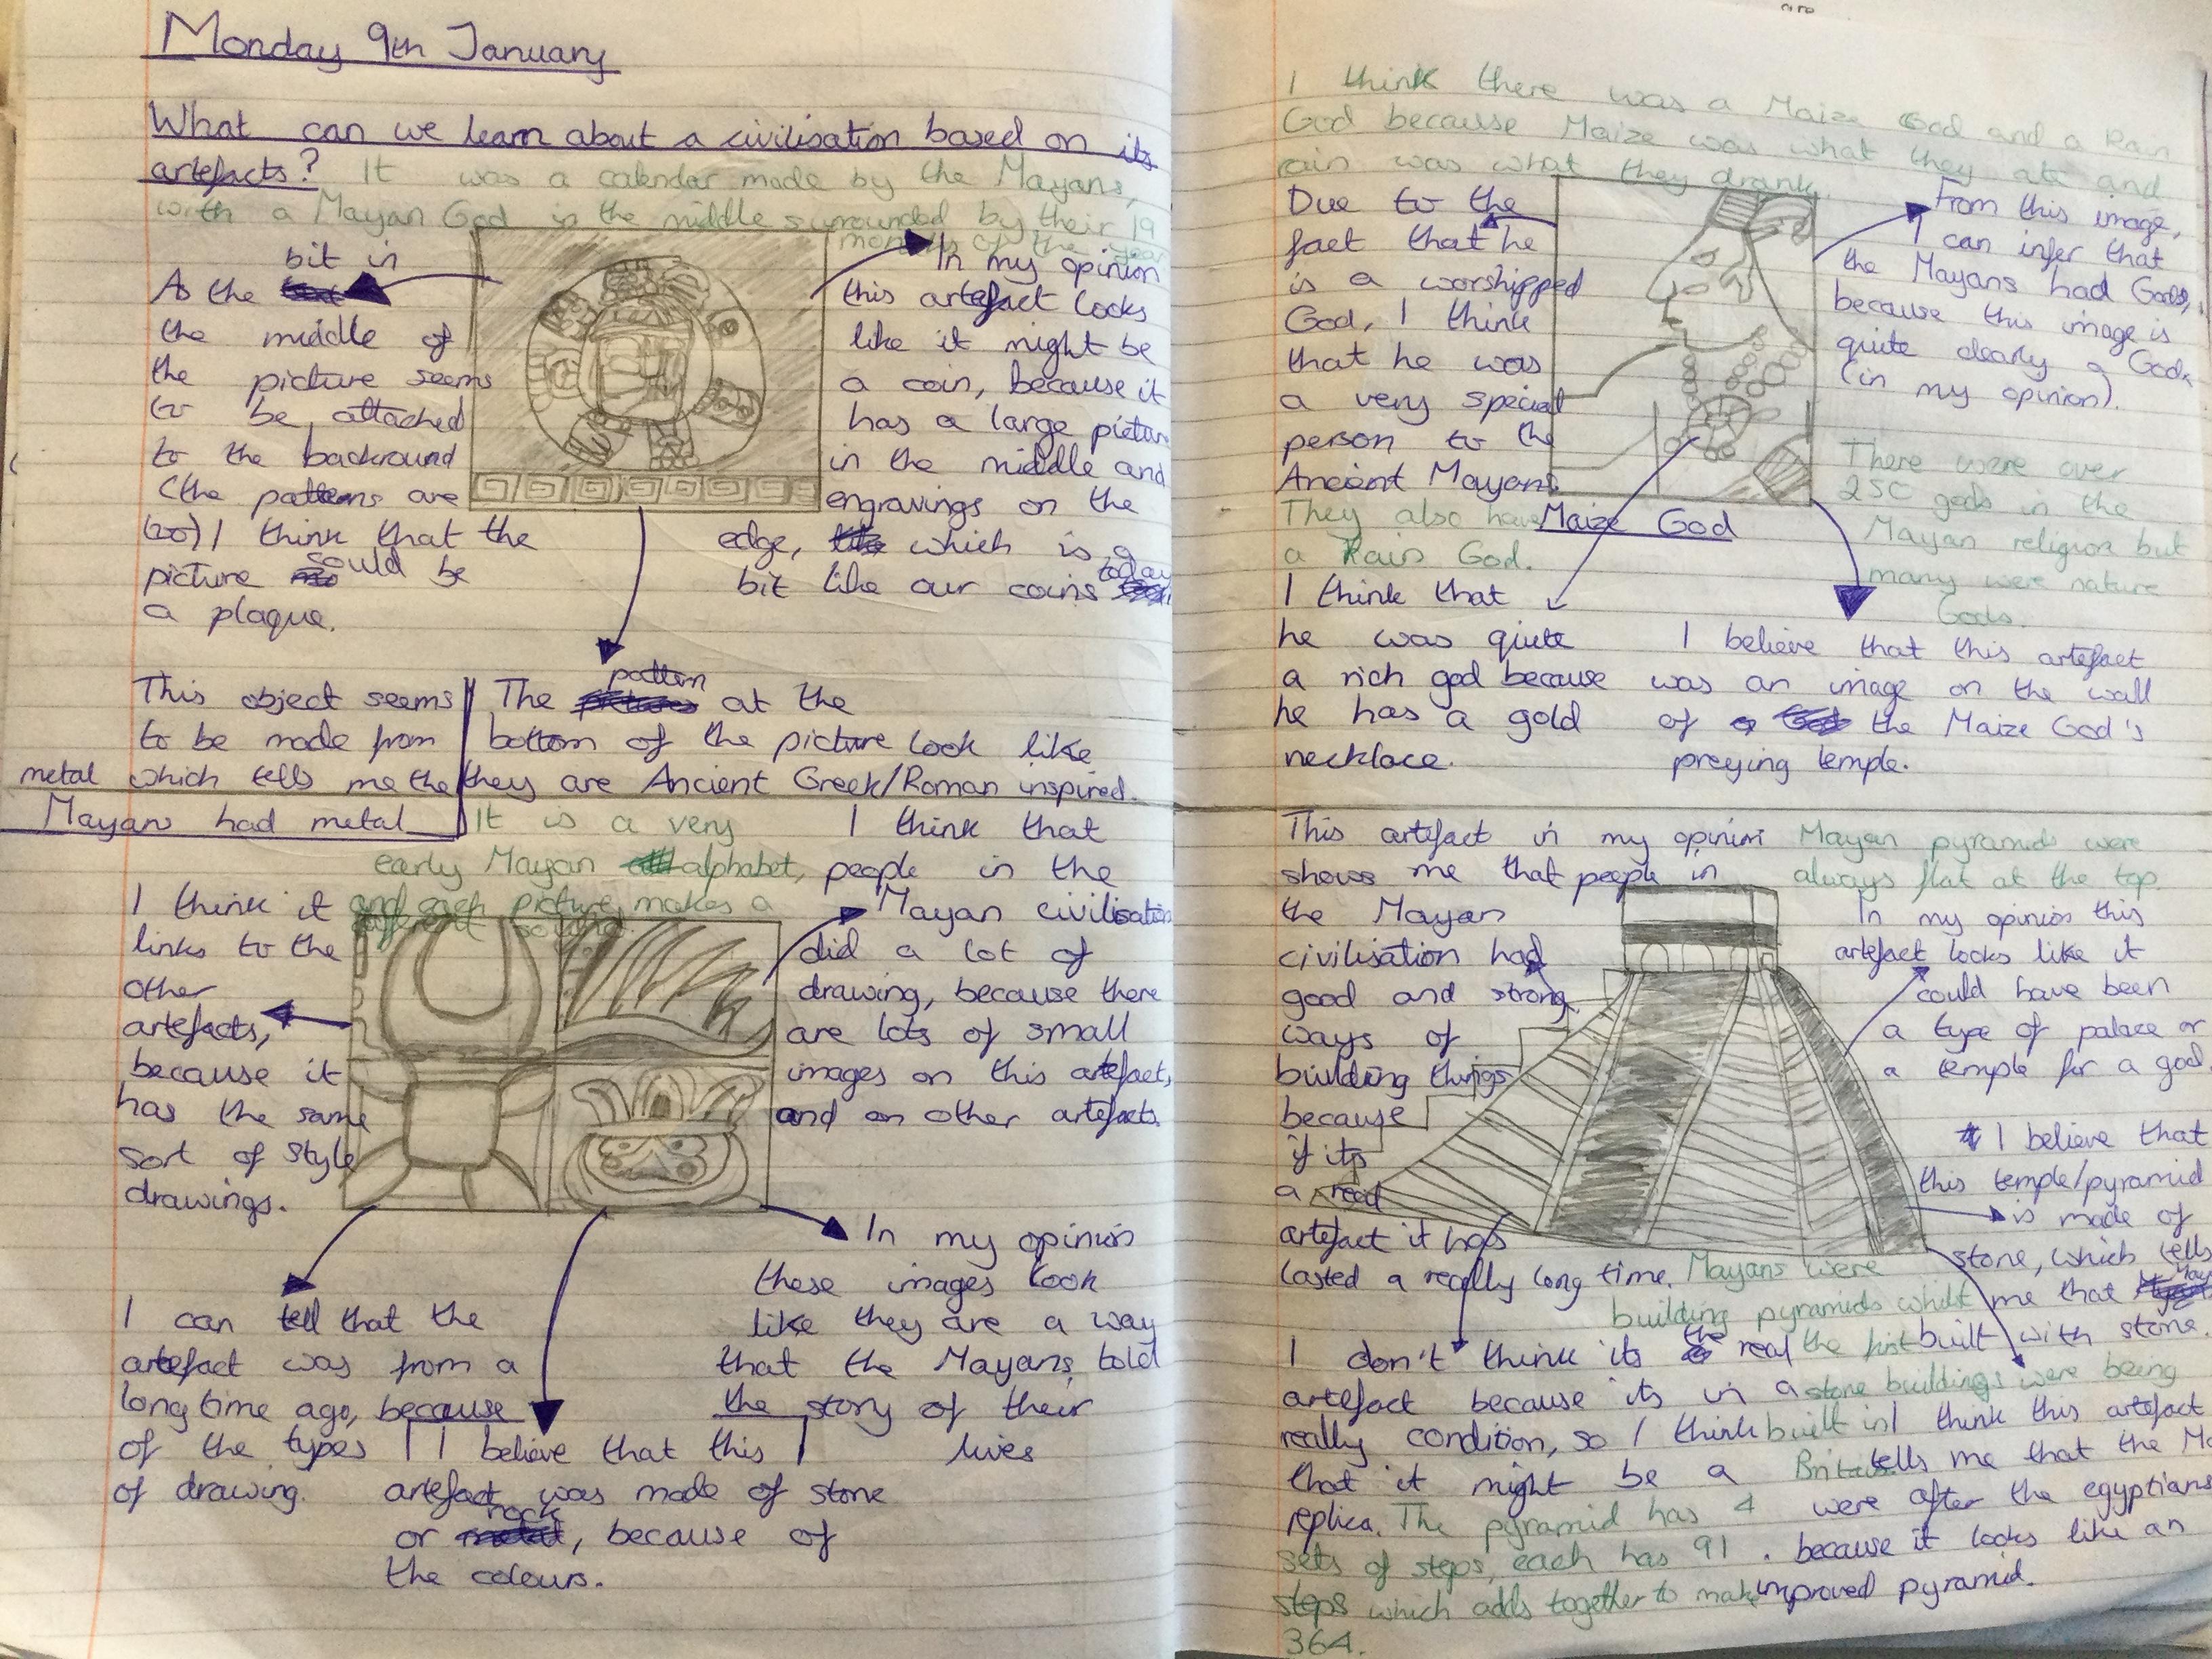 Monday 9th January
What can we learn about a civilisation based on its
artefacts? It was a calendar made by the Mayans,
with a Mayan God in the middle surrounded by their 19
months of the year
bit in
As the
the middle of
the picture seems
to be attached
to the backround
(the patterns are
too) I think that the
picture could be
a plaque.
In my opinion
this artefact looks
like it might be
a coin, because it
has a large picture
in the middle and
engravings on the
edge, which is a
bit like our coins today
This object seems
to be made from
metal which tells me the
Mayans had metal
The pattern at the
bottom of the picture look like
they are Ancient Greek/Roman inspired.
It is a very
early Mayan alphabet,
and each picture makes a
different sound.
I think it
links to the
other
artefacts,
because it
has the same
sort of style
drawings.
I think that
people in the
Mayan civilisation
did a lot of
drawing, because there
are lots of small
images on this artefact,
and on other artefacts.
I can tell that the
artefact was from a
long time ago, because
of the types
of drawing.
I believe that this
artefact was made of stone
or rock, because of
the colours.
In my opinion
these images look
like they are a way
that the Mayans told
the story of their
lives
are
I think there was a Maize God and a Rain
God because Maize was what they ate and
rain was what they drank.
Due to the
fact that he
is a worshipped
God, I think
that he was
a very special
person to the
Ancient Mayans.
They also have
a Rain God.
Maize God
From this image,
I can infer that
the Mayans had Gods,
because this image is
quite clearly a God
(in my opinion).
There were over
250 gods in the
Mayan religion but
many were nature
Gods.
I think that
he was quite
a rich god because
he has a gold
necklace.
I believe that this artefact
was an image on the wall
of the Maize God's
preying temple.
This artefact in my opinion
shows me that people in
the Mayan
civilisation had
good and strong
ways of
building things
because
if its
a real
artefact it has
lasted a really long time.
Mayan pyramids were
always flat at the top.
In my opinion this
artefact looks like it
could have been
a type of palace or
a temple for a god.
I believe that
this temple/pyramid
is made of
stone, which tells
me that
built with stone.
Mayans were
building pyramids whilst
the first
stone buildings were being
built in
Britain.
I don't think its the real
artefact because its in a
really condition, so I think
that it might be a
replica. The pyramid has 4
sets of steps, each has 91
steps which adds together to make
364.
I think this artefact
tells me that the
were after the egyptians
because it looks like an
improved pyramid.